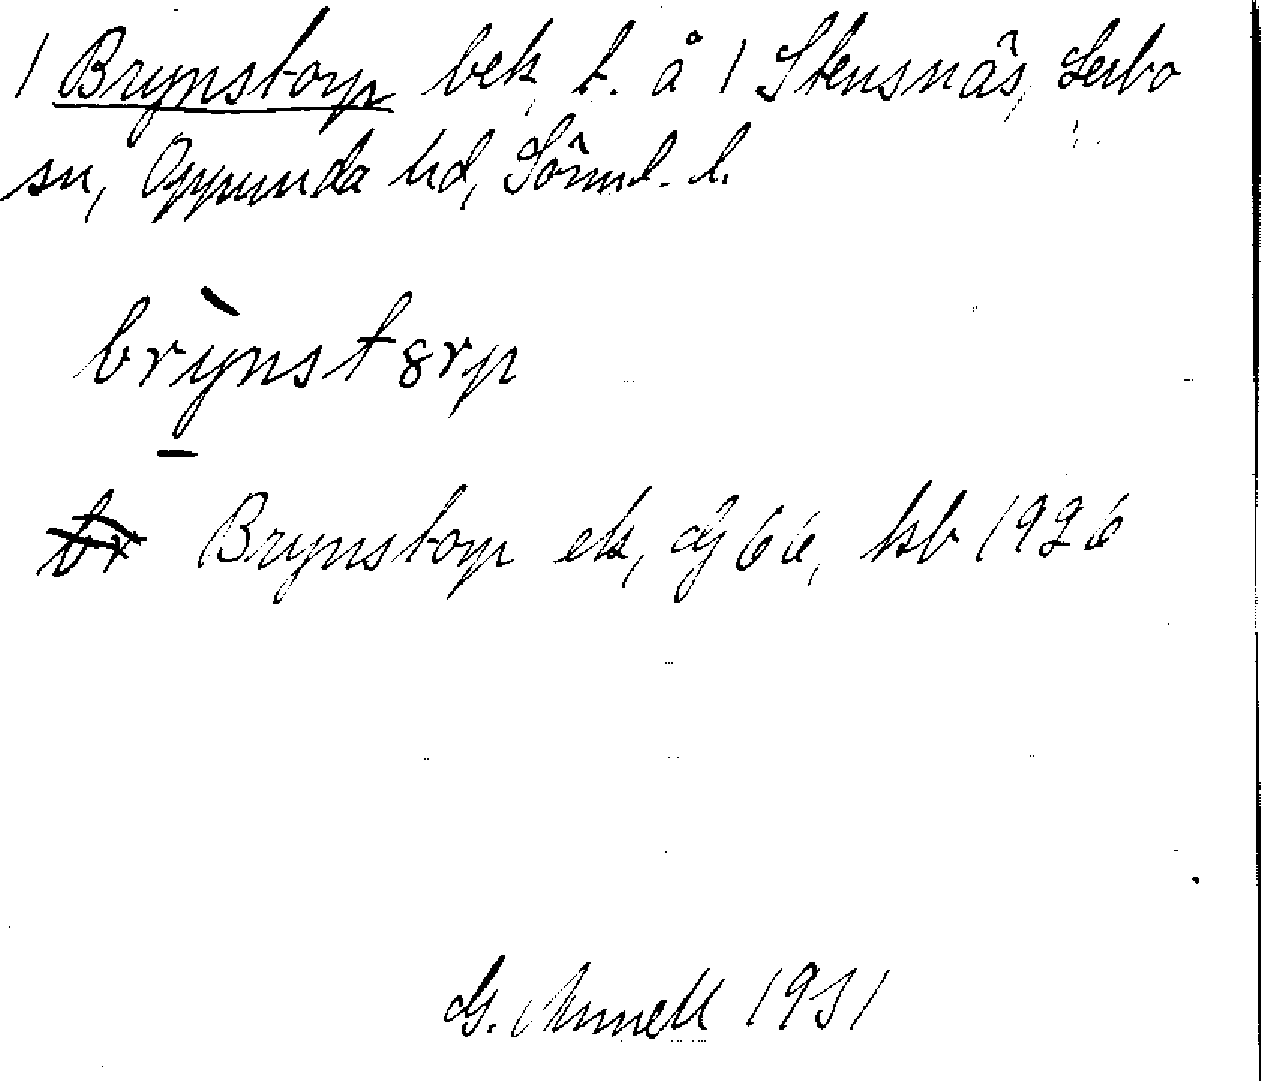 1 Brynstorp bek. t. å 1 Stensnäs, Lerbo
sn, Oppunda hd, Sörml. l.
brỳnst8rp
Brynstorp ek, gj 66, hsb 1926
G. Annell 1931